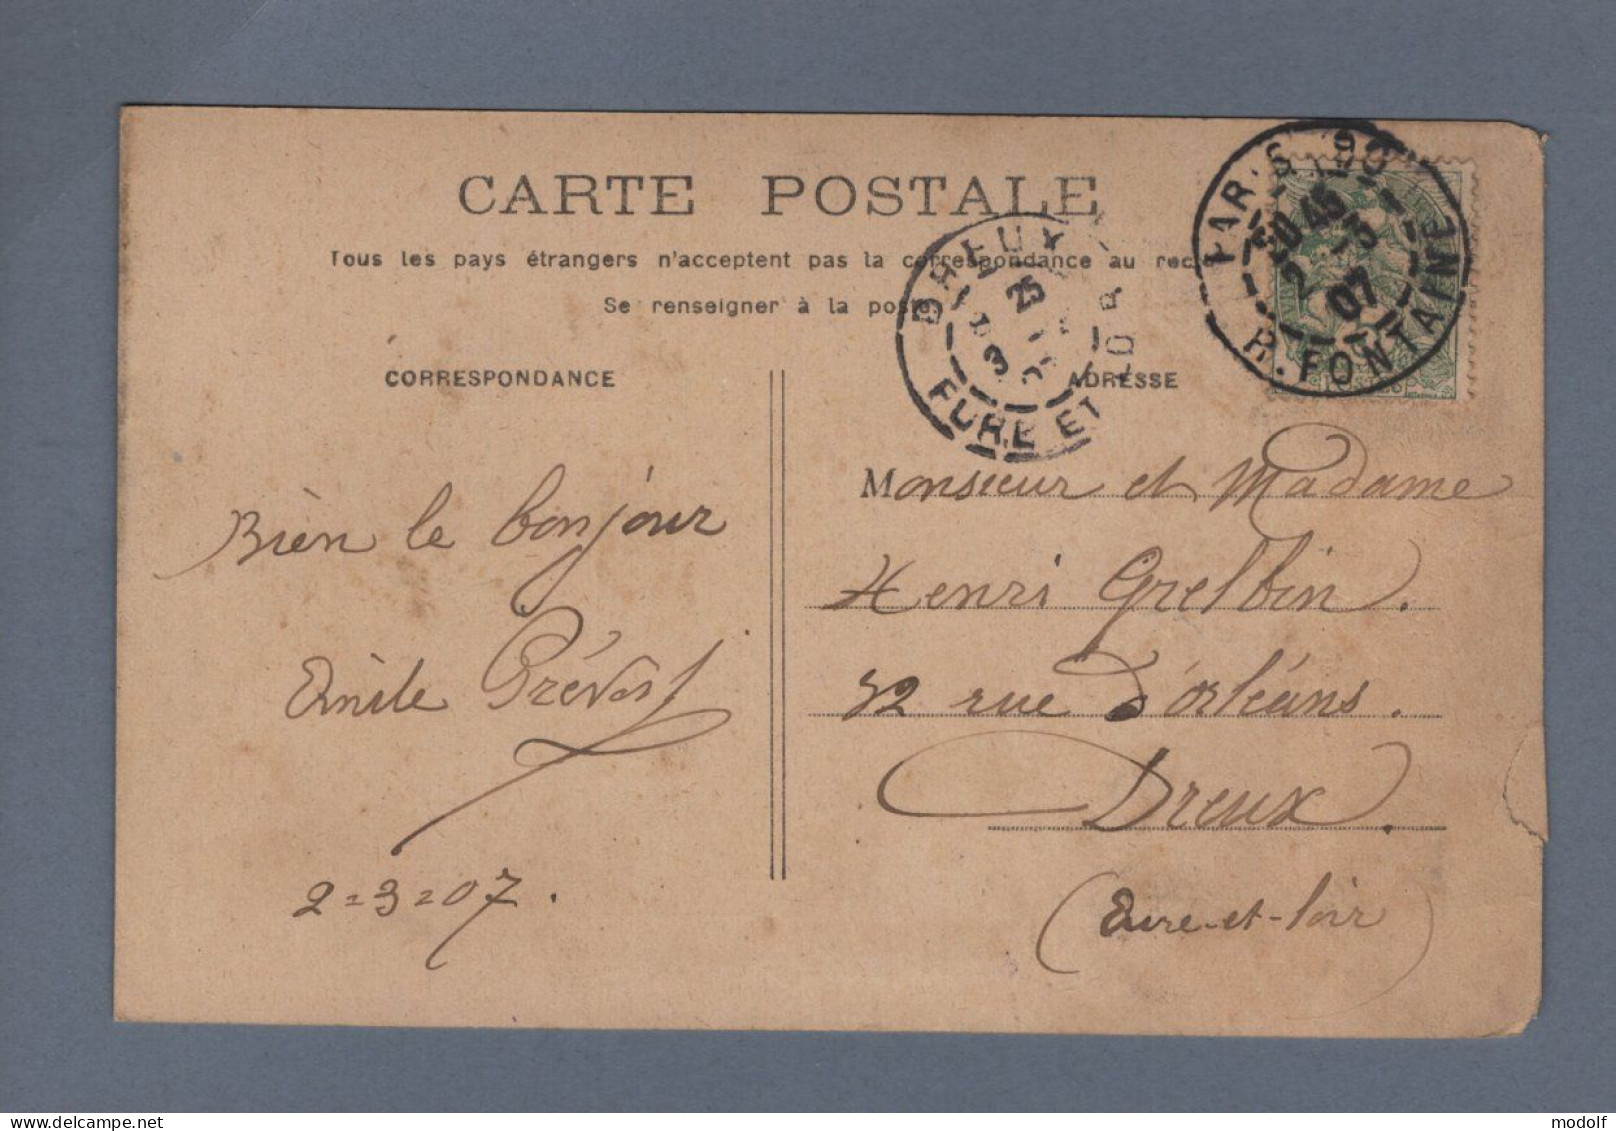 CARTE POSTALE
Tous les pays étrangers n'acceptent pas la correspondance au rec
Se renseigner à la poste
CORRESPONDANCE
ADRESSE
PARIS 90
20 45
2 3
07
R. FONTAINE
DREUX
25
3
EURE ET LOIR
Bien le bonjour
Emile Prévost
2=3=07.
Monsieur et Madame
Henri Grelbin.
32 rue d'orléans.
Dreux.
(Eure-et-loir)
www.delcampe.net
modolf